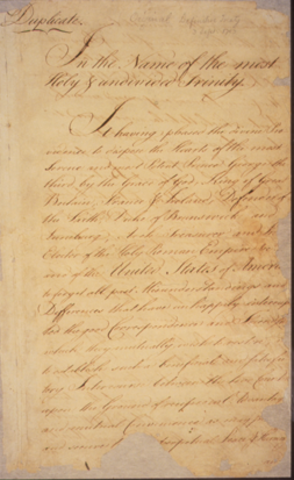 Duplicate.
In the Name of the most
Holy & undivided Trinity.
It having pleased the divine Pro
vidence to dispose the Hearts of the most
Serene and most Potent Prince George the
third by the Grace of God, King of Great
Britain, France & Ireland, Defender of
the Faith, Duke of Brunswick and
Lunebourg, Arch Treasurer and
Elector of the Holy Roman Empire
and of the United States of America
to forget all past Misunderstandings and
Differences that have unhappily interrup
ted the good Correspondence and Friendship
which they mutually wish to restore
to establish such a beneficial and satisfac
tory Intercourse between the two
upon the Ground of reciprocal
and mutual Convenience as may
and secure both perpetual Peace &